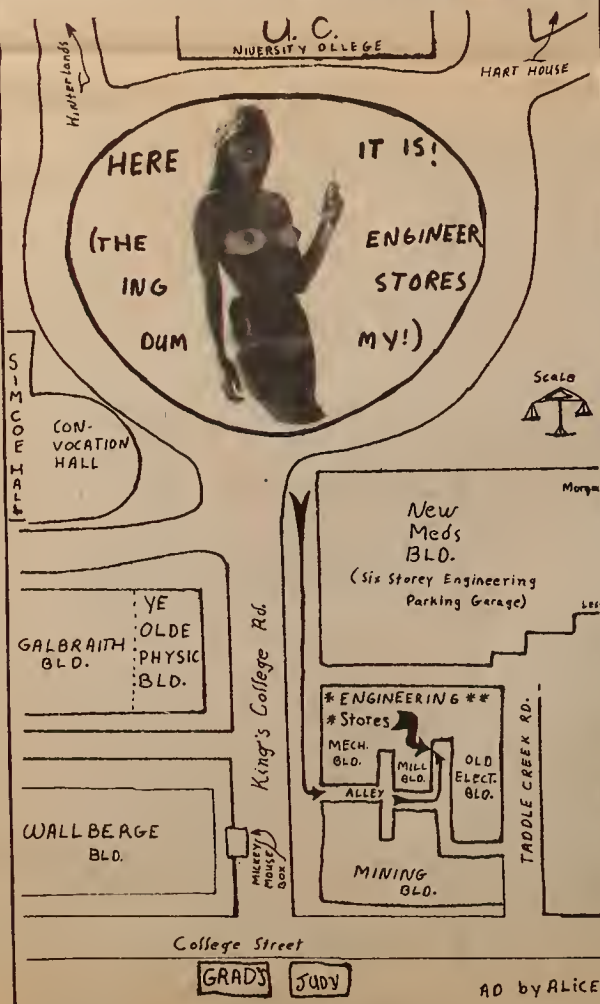 U. C.
NIVERSITY OLLEGE
Hinterlands
HART HOUSE
HERE IT IS!
(THE ENGINEER
ING STORES
DUM MY!)
SIMCOE HALL
CON-
VOCATION
HALL
Scale
New
Meds
BLD.
(Six Storey Engineering
Parking Garage)
GALBRAITH
BLD.
YE
OLDE
PHYSIC
BLD.
King's College Rd.
* ENGINEERING **
* Stores
MECH.
BLD.
MILL
BLD.
OLD
ELECT.
BLD.
ALLEY
TADDLE CREEK RD.
WALLBERGE
BLD.
MICKEY
MOUSE
BOX
MINING
BLD.
College Street
GRADS
JUDY
AD by ALICE